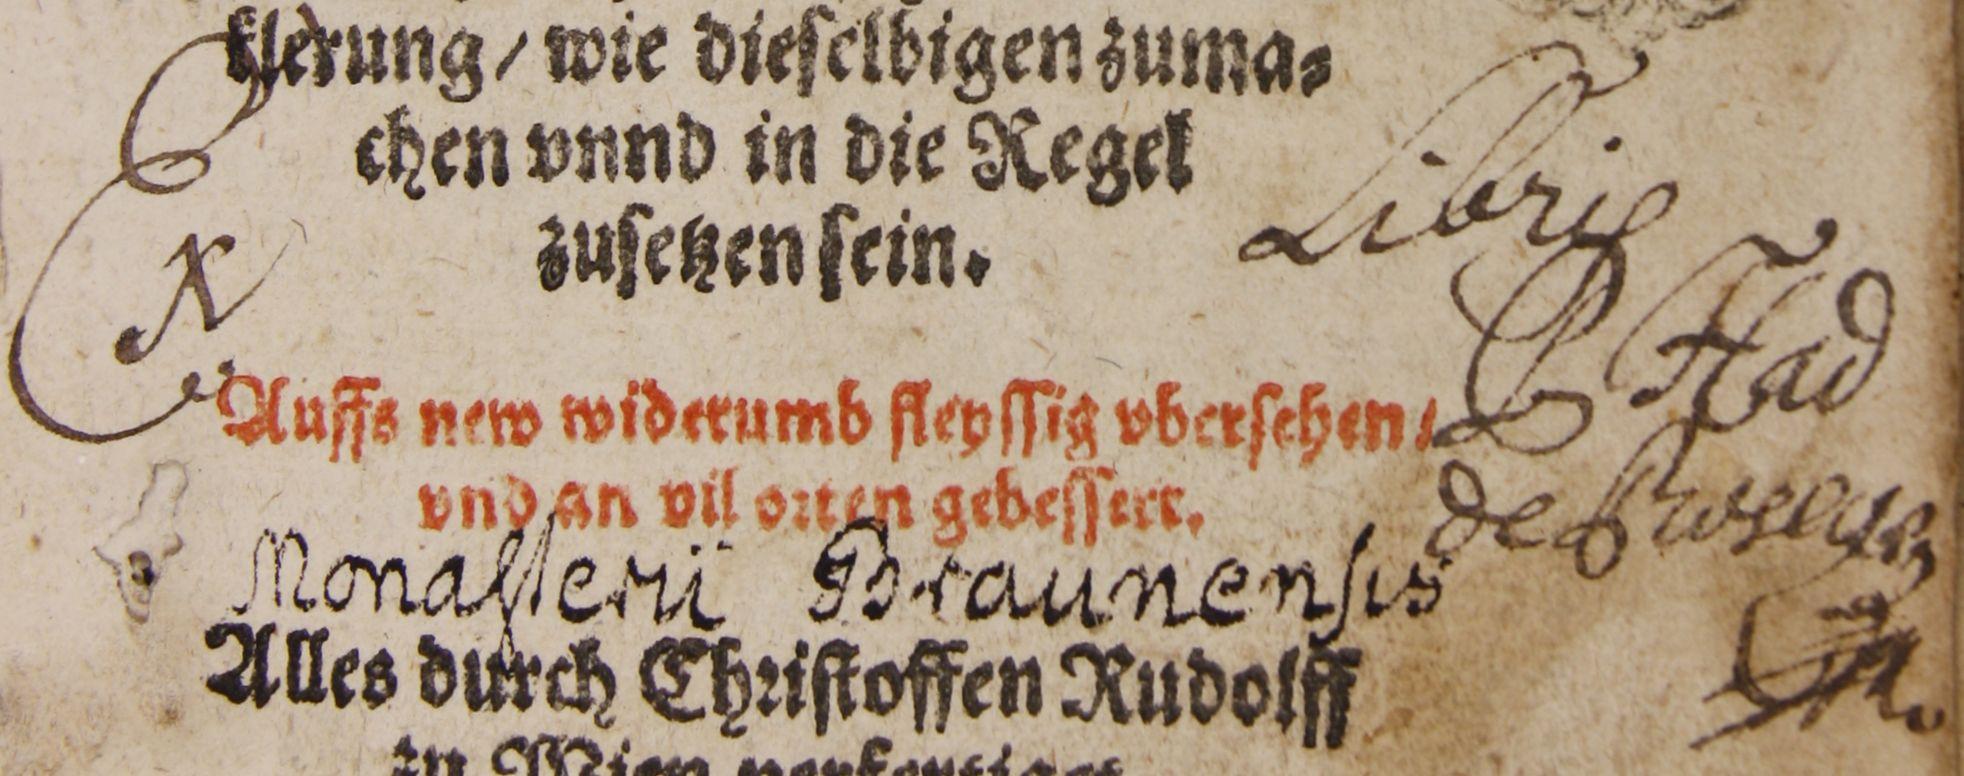 klerung / wie dieselbigen zuma⸗
chen vnnd in die Regel
zusetzen sein.
Ex
Libris
Had
de
Auffs new widerumb fleyssig vbersehen /
vnd an vil orten gebessert.
Monasterii Braunensis
Alles durch Christoffen Rudolff
zu Wien verfertiget